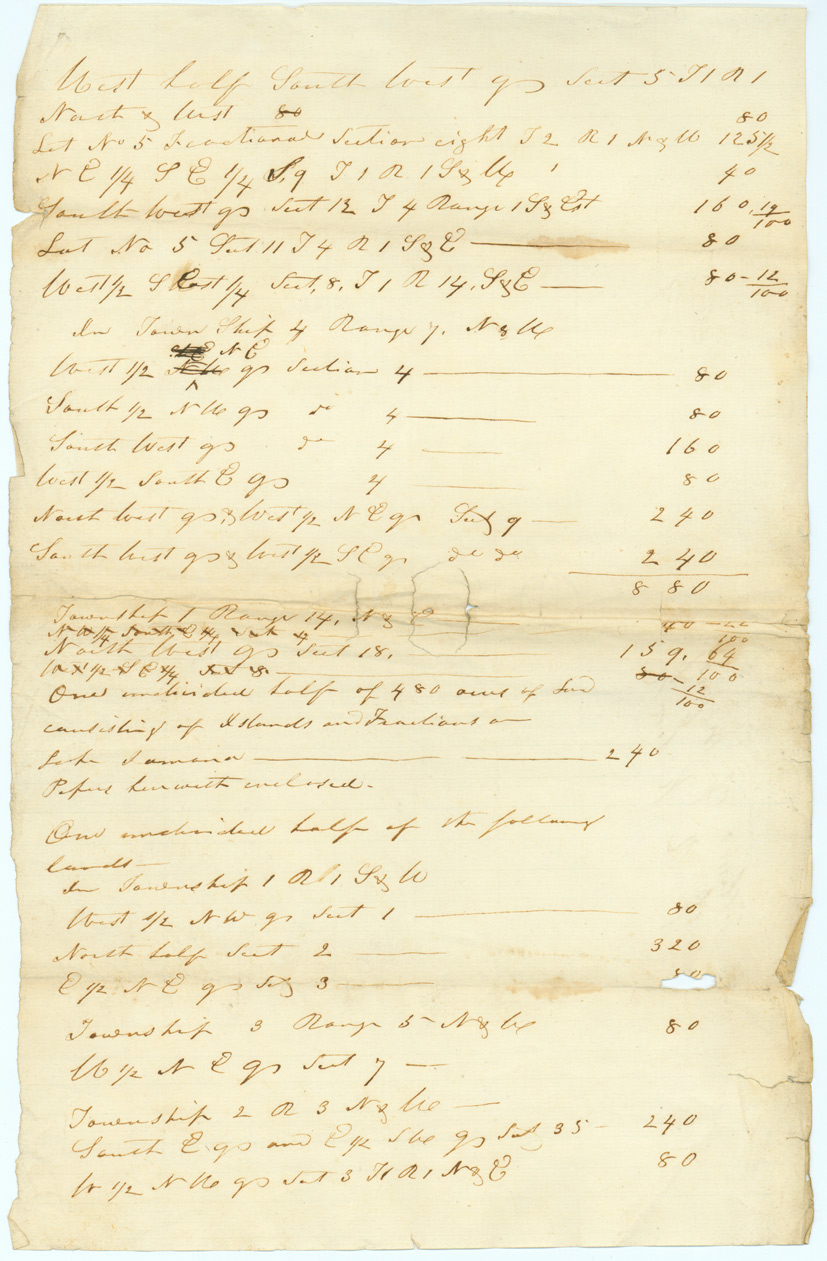 West half South West qr Sect 5 T1 R1
North & West 80 80
Lot No 5 Fractional Section eight T2 R1 N & W 125 1/2
N E 1/4 S E 1/4 S. 9 T1 R1 S & W 40
South West qr Sect 12 T 4 Range 1 S & Est 160. 12/100
Lot No 5 Sect 11 T 4 R 1 S & E — 80
West 1/2 S East 1/4 Sect. 8. T1 R 14. S & E — 80 - 12/100
In Town Ship 4 Range 7. N & W
N E
West 1/2 N W qr Section 4 — 80
South 1/2 N W qr do 4 — 80
South West qr do 4 — 160
West 1/2 South E qr 4 — 80
North West qr & West 1/2 N E qr Sect 9 — 240
South West qr & West 1/2 S E qr do do 240
880
Township 1 Range 14. N & E
N W 1/4 South E 1/4 Sect 4 — 40 - /100
North West qr Sect 18. 159. 64/100
W 1/2 S E 1/4 Sect 8 — 80 - 12/100
One undivided half of 480 acres of
consisting of Islands and Fractions on
Lake — 240
Papers herewith enclosed.
One undivided half of the following
lands —
In Township 1 R 1 S & W
West 1/2 N W qr Sect 1 — 80
North half Sect 2 — 320
E 1/2 N E qr Sect 3 — 80
Township 3 Range 5 N & W 80
W 1/2 N E qr Sect 7 —
Township 2 R 3 N & W —
South E qr and E 1/2 S W qr Sect 35 - 240
W 1/2 N W qr Sect 3 T1 R1 N & E 80